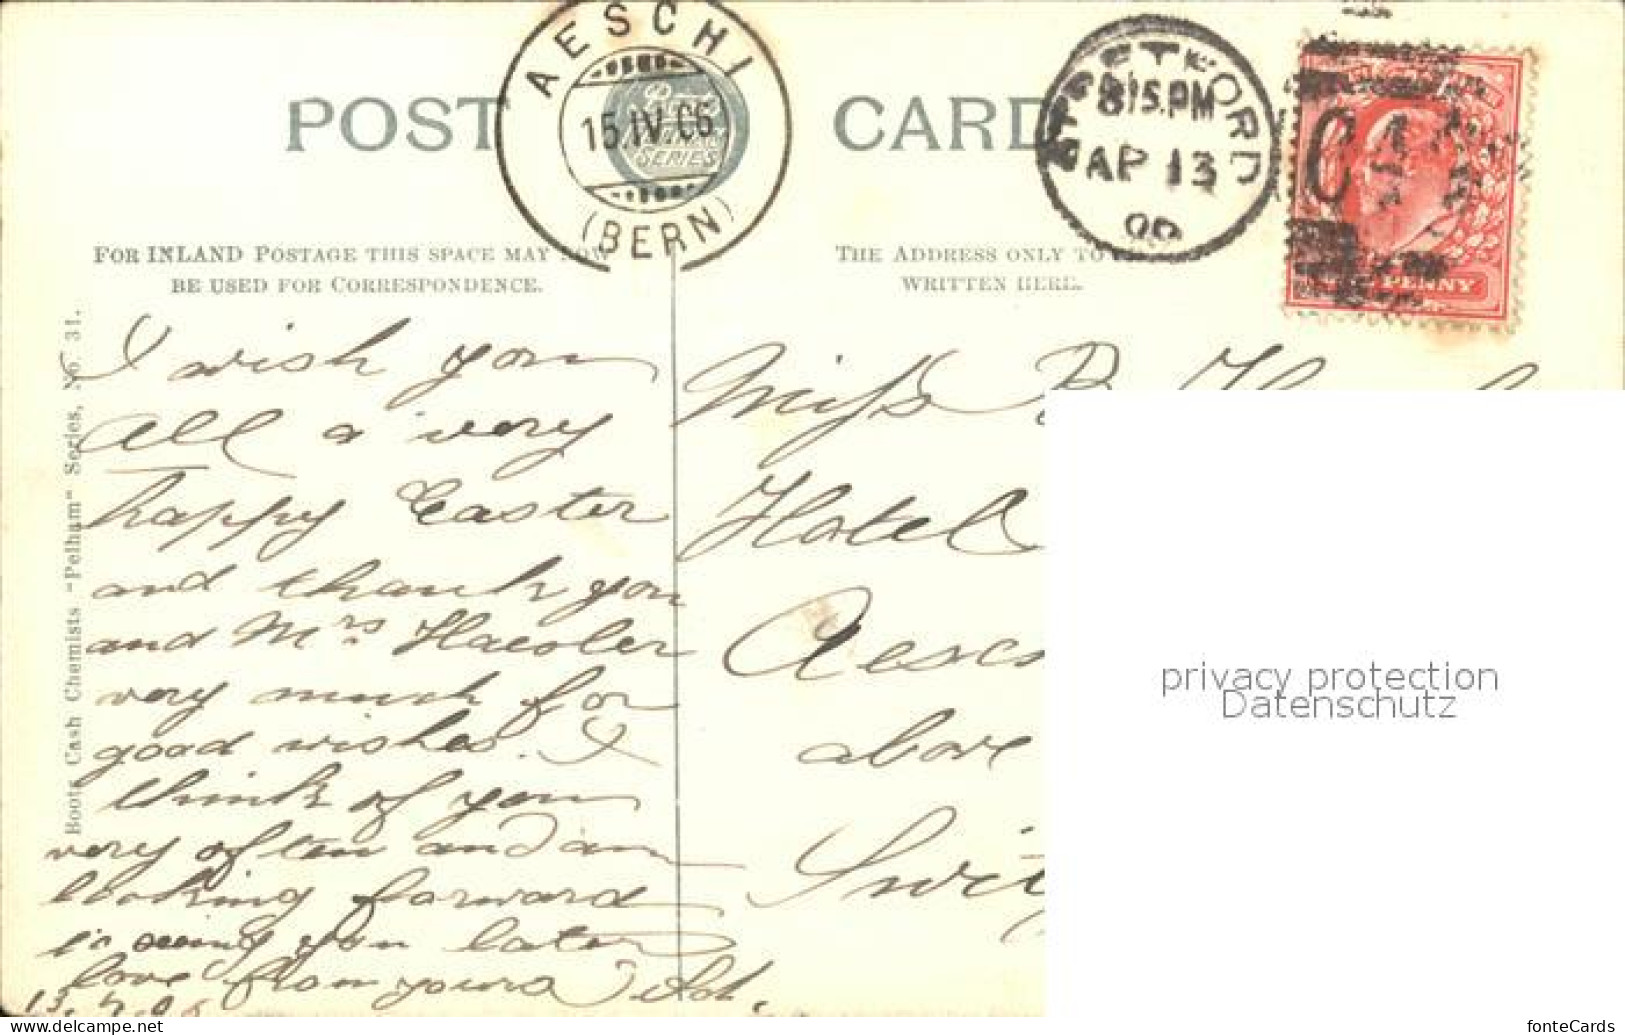 POST CARD
AESCHI
15.IV.06
(BERN)
BOOTS
SERIES
8 15.PM
AP 13
06
PENNY
FOR INLAND POSTAGE THIS SPACE MAY NOW
BE USED FOR CORRESPONDENCE.
THE ADDRESS ONLY TO
WRITTEN HERE.
Boots Cash Chemists "Pelham" Series, No. 31.
I wish you
all a very
happy Easter
and thank you
and Mrs Haesler
very much for
good wishes. I
think of you
very often and am
looking forward
to seeing you later
love from yours
13.4.06
Miss
Hotel
Aesc
above
Swit
privacy protection
Datenschutz
www.delcampe.net
fonteCards